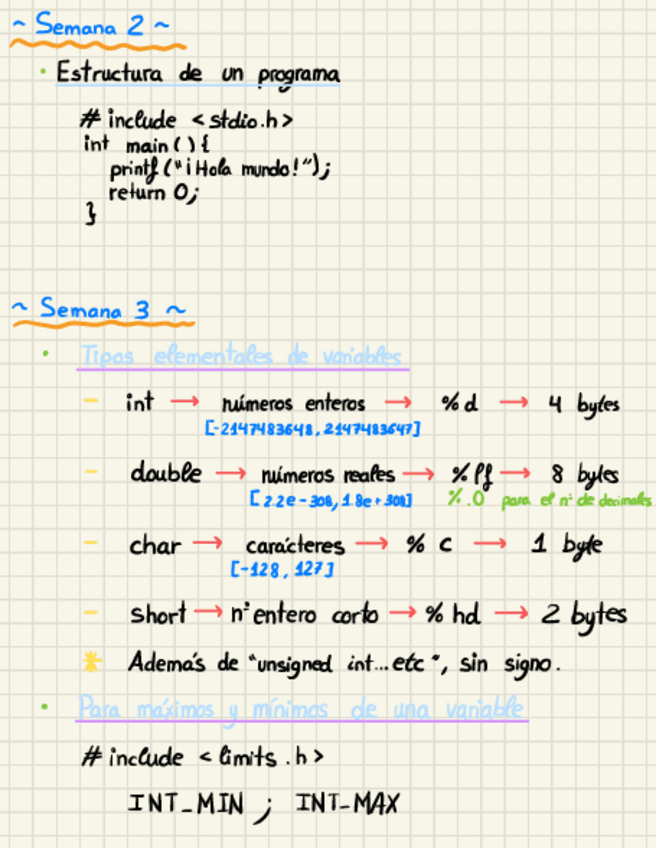 ~ Semana 2 ~
• Estructura de un programa
# include <stdio.h>
int main(){
printf("¡Hola mundo!");
return 0;
}
~ Semana 3 ~
• Tipos elementales de variables
– int → números enteros → %d → 4 bytes
[-2147483648, 2147483647]
– double → números reales → %lf → 8 bytes
[2.2e-308, 1.8e+308] %.0 para el nº de decimales
– char → carácteres → % c → 1 byte
[-128, 127]
– short → nº entero corto → % hd → 2 bytes
* Además de "unsigned int...etc", sin signo.
• Para máximos y mínimos de una variable
# include <limits.h>
INT_MIN ; INT_MAX